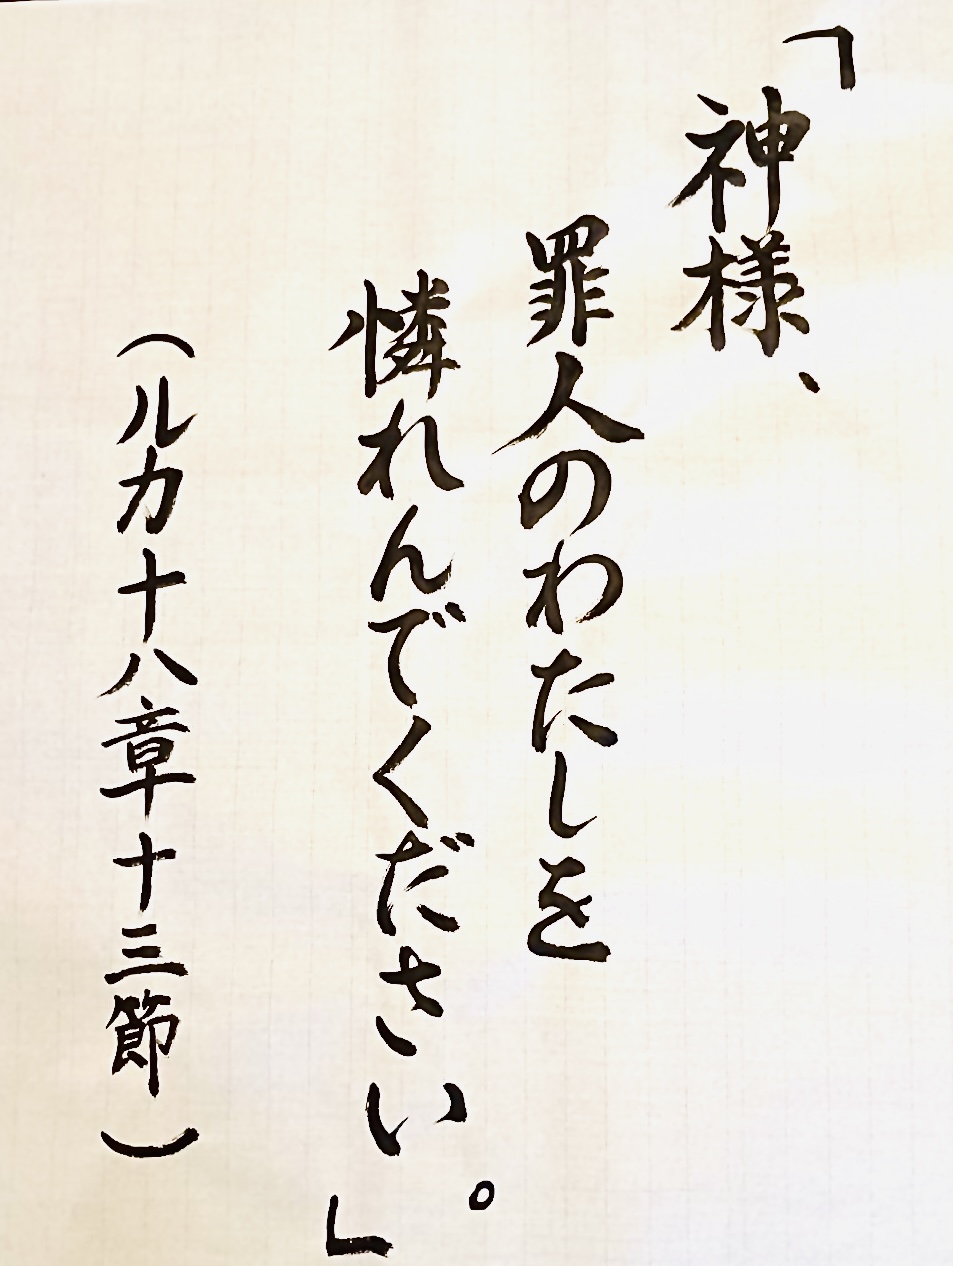 「神様、
罪人のわたしを
憐れんでください。」
（ルカ十八章十三節）